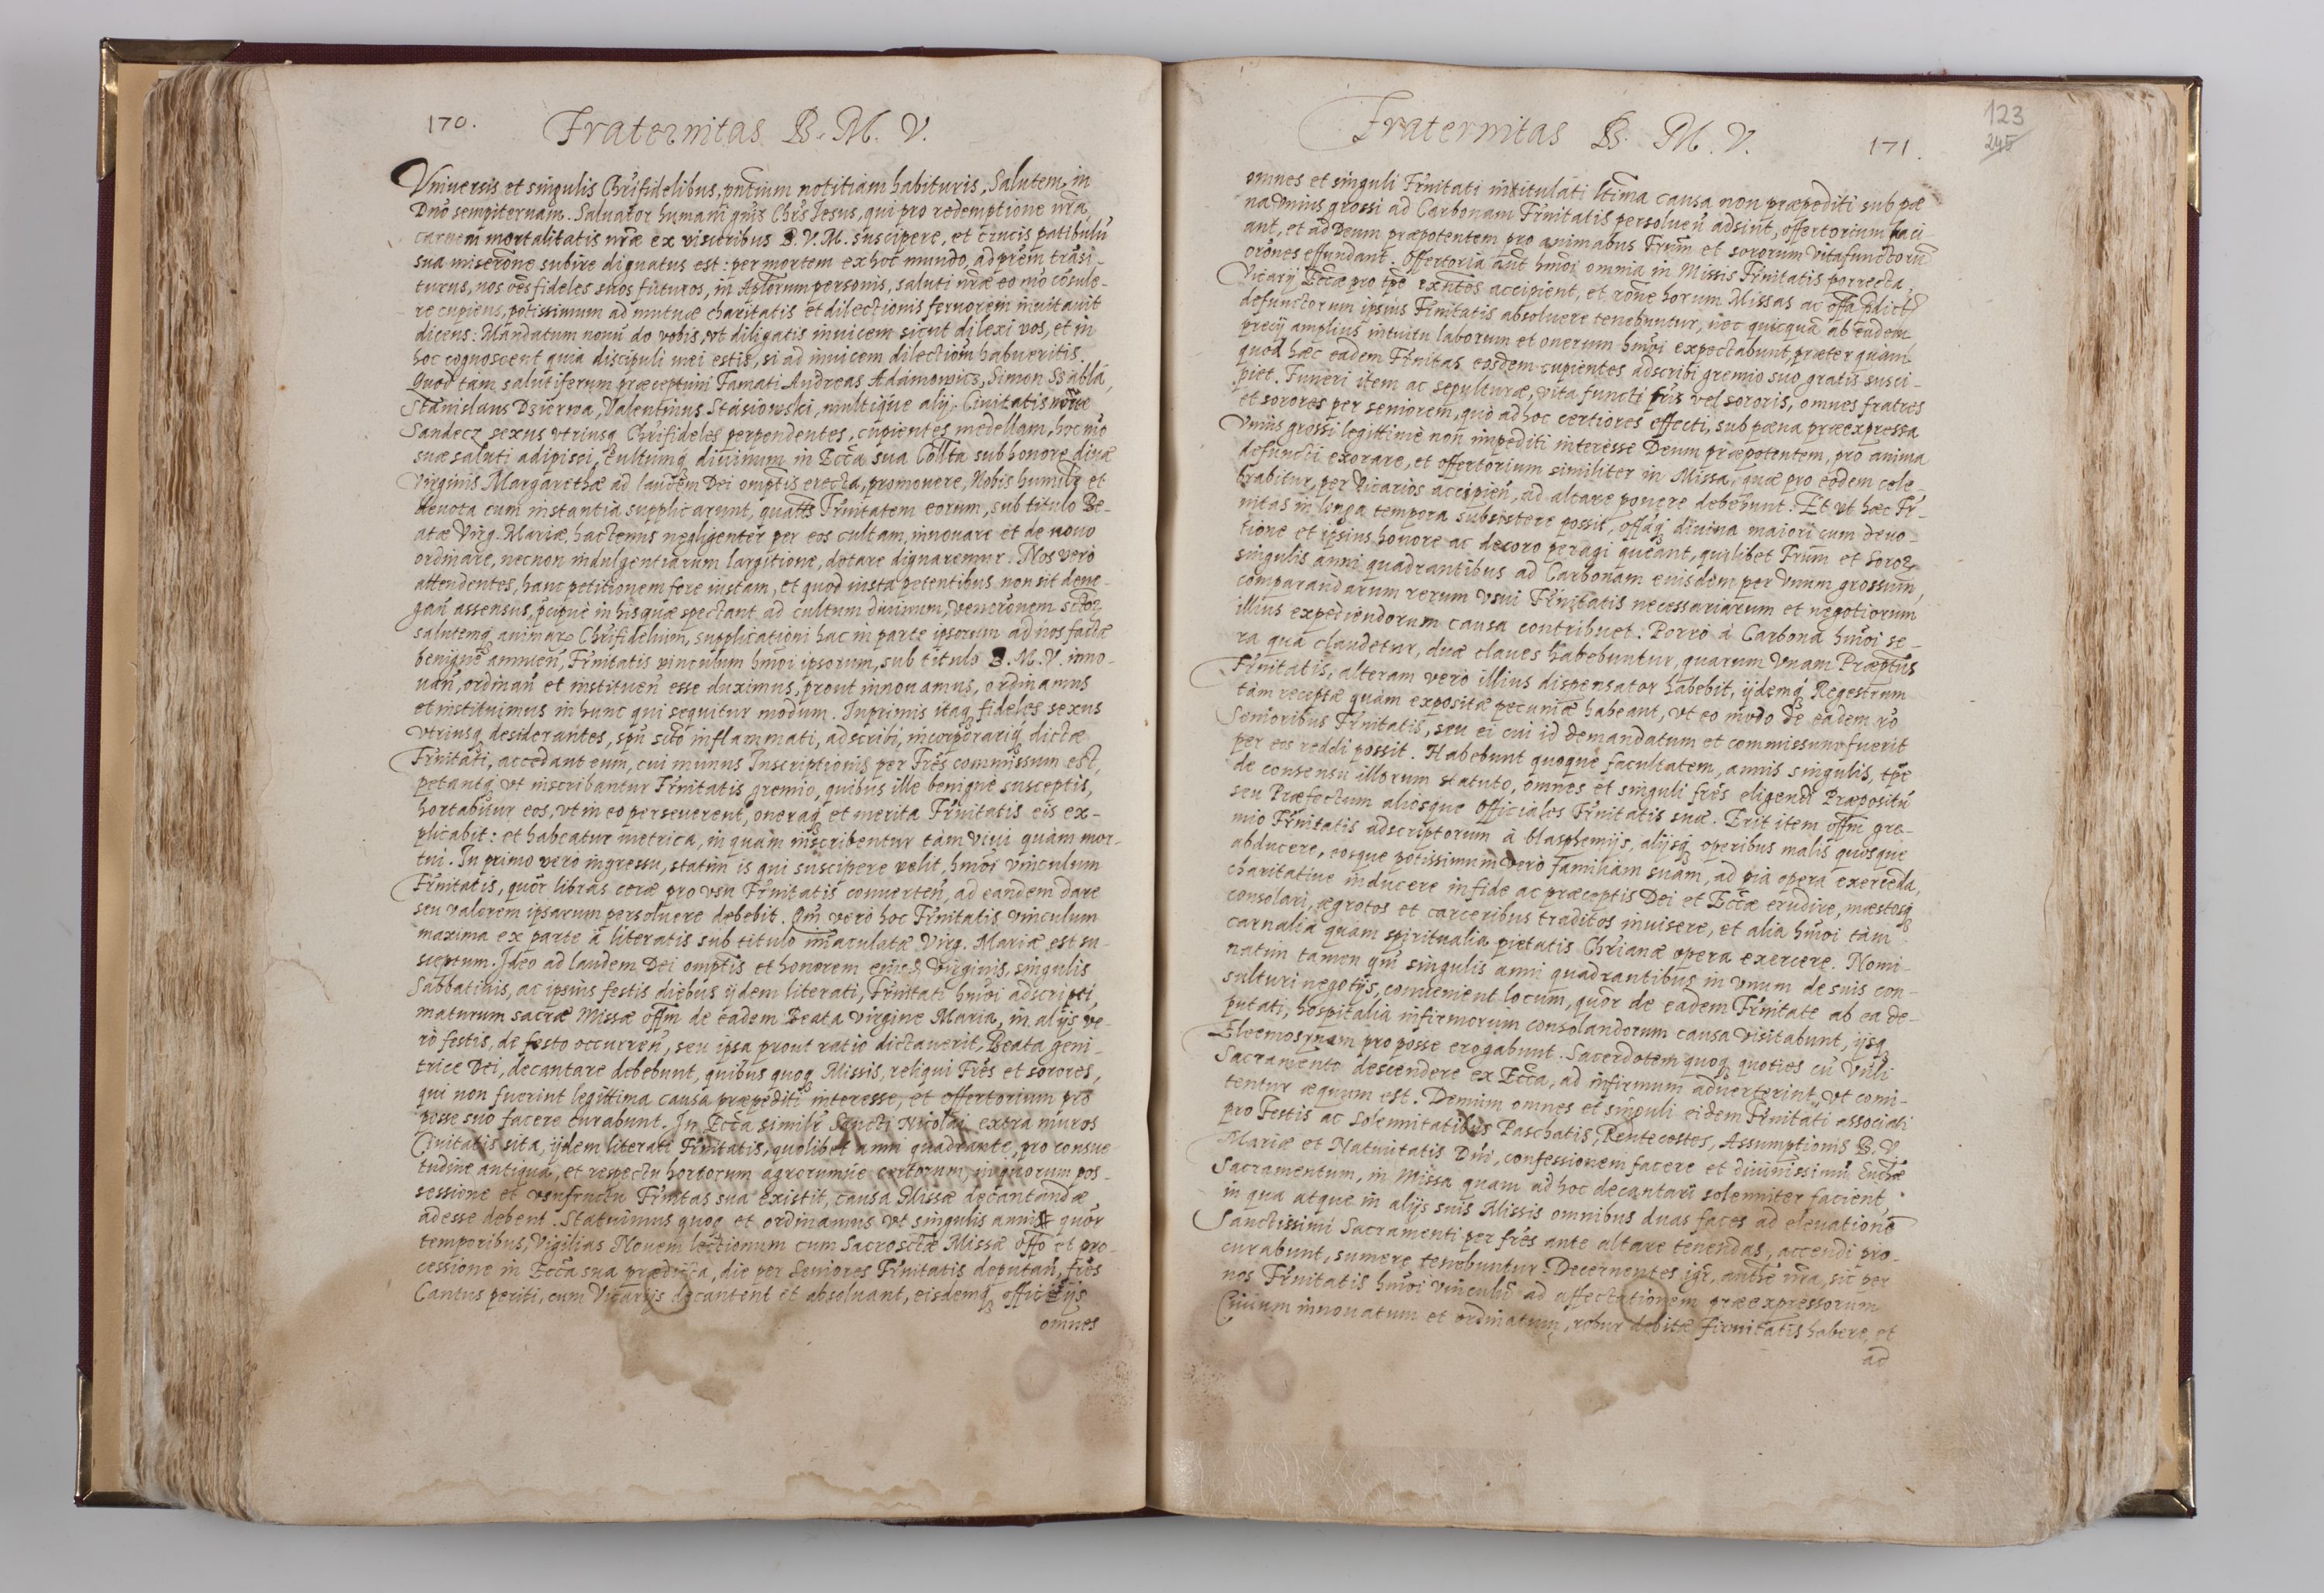 170. Fraternitas B. M. V.
Vniuersis et singulis Chrifidelibus, pntium notitiam habituris, Salutem in
Dno sempiternam. Saluator humani gnis Chrs Iesus, qui pro redemptione nra,
carnem mortalitatis nræ ex visceribus B. V. M. suscipere, et crucis patibulu
sua miserone subire dignatus est: per mortem ex hoc mundo, ad prem trasi-
turus, nos oes fideles suos futuros, in Aplorum personis, saluti nræ eo mo cosule-
re cupiens, potissimum ad mutuæ charitatis et dilectionis feruorem inuitauit
dicens: Mandatum nouu do vobis, vt diligatis inuicem sicut dilexi vos, et in
hoc cognoscent quia discipuli mei estis, si ad inuicem dilectiom habueritis.
Quod tam salutiferum præceptum Famati Andreas Adamowicz, Simon Ssabla,
Stanislaus Dzierwa, Valentinus Stasiowski, multique alij, Ciuitatis noue
Sandecz sexus vtriusq Chrifideles perpendentes, cupientes medellam, hoc mo
suæ saluti adipisci, cultumq diuinum in Ecca sua Collta sub honore diuæ
Virginis Margarethæ ad laudem Dei omptis erecta, promouere, Nobis humilr et
deuota cum instantia supplicarunt, quatts Frnitatem eorum, sub titulo Be-
atæ Virg. Mariæ hactenus negligenter per eos cultam, innouare et de nouo
ordinare, necnon indulgentiarum largitione, dotare dignaremur. Nos vero
attendentes, hanc petitionem fore iustam, et quod iusta petentibus non sit dene-
gan assensus, pcipuè in his quæ spectant ad cultum diuinum, veneronem sctor
salutemq animar Chrifidelium, supplicationi hac in parte ipsorum ad nos factæ
benignè annuen, Frnitatis vinculum hmoi ipsorum, sub titulo B. M. V. inno-
uan, ordinan et instituen esse duximus, prout innouamus, ordinamus
et instituimus in hunc qui sequitur modum. Inprimis itaq fideles sexus
vtriusq desiderantes, spu scto inflammati, adscribi, incorporariq dictæ
Frnitati, accedant eum, cui munus Inscriptionis per Fres commissum est,
petantq vt inscribantur Frnitatis gremio, quibus ille benignè susceptis,
hortabitur eos, vt in eo perseuerent, oneraq et merita Frnitatis eis ex-
plicabit: et habeatur metrica, in quam inscribentur tàm viui quàm mor-
tui. In primo vero ingressu, statim is qui suscipere velit, hmoi vinculum
Frnitatis, quor libras ceræ pro vsu Frnitatis conuerten, ad eandem dare
seu valorem ipsarum persoluere debebit. Qm verò hoc Frnitatis vinculum
maxima ex parte à literatis sub titulo imaculatæ Virg. Mariæ est su-
sceptum. Ideo ad laudem Dei omptis et honorem eiusd Virginis, singulis
Sabbatinis, ac ipsius festis diebus ijdem literati, Frnitati hmoi adscripti,
maturum sacræ Missæ offm de eadem Beata virgine Maria, in alijs ve-
rò festis, de festo occurren, seu ipsa prout ratio dictauerit, Beata geni-
trice Dei, decantare debebunt, quibus quoq Missis, reliqui Fres et sorores,
qui non fuerint legittima causa præpediti interesse, et offertorium pro
posse suo facere curabunt. In Ecca similr Sancti Nicolai extra muros
Ciuitatis sita, ijdem literati Frnitatis, quolibet anni quadrante, pro consue
tudine antiqua, et respectu hortorum agrorumue certorum, in quorum pos-
sessione et vsufructu Frnitas sua existit, causa Missæ decantandæ
adesse debent. Statuimus quoq et ordinamus vt singulis annis quor
temporibus, Vigilias Nouem lectionum cum Sacrosctæ Missæ offo et pro-
cessione in Ecca sua prædicta, die per Seniores Frnitatis deputan, fres
Cantus periti, cum Vicarijs decantent et absoluant, eisdemq officijs
omnes
Fraternitas B. M. V. 171.
123
245
omnes et singuli Frnitati intitulati ltima causa non præpediti sub pæ
na vnius grossi ad Carbonam Frnitatis persoluen adsint, offertorium faci-
ant, et ad Deum præpotentem pro animabus Frum et sororum vita functoru
orones effundant. Offertoria aut hmoi omnia in Missis Frnitatis porrecta,
Vicarij Eccæ pro tpe exntes accipient, et rone horum Missas ac offa pdict
defunctorum ipsius Frnitatis absoluere tenebuntur, nec quicqua ab eadem
precij amplius intuitu laborum et onerum hmoi expectabunt, præter quam
quod hæc eadem Frnitas eosdem cupientes adscribi gremio suo gratis susci-
piet. Funeri item ac sepulturæ, vita functi fris vel sororis, omnes fratres
et sorores per seniorem, quò ad hoc certiores effecti, sub pæna præexpressa
Vnius grossi legittimè non impediti interesse Deum præpotentem, pro anima
defuncti exorare, et offertorium similiter in Missa, quæ pro eodem cele-
brabitur, per Vicarios accipien, ad altare ponere debebunt. Et vt hæc Fr-
nitas in longa tempora subsistere possit, offaq diuina maiori cum deuo-
tione et ipsius honore ac decoro peragi queant, quilibet Frum et Soror
singulis anni quadrantibus ad Carbonam eiusdem per Vnum grossum,
comparandarum rerum vsui Frnitatis necessariarum et negotiorum
illius expediendorum causa contribuet. Porrò à Carbona hmoi se-
ra qua claudetur, duæ claues habebuntur, quarum Vnam Præptus
Frnitatis, alteram verò illius dispensator habebit, ijdemq Regestrum
tàm receptæ quàm expositæ pecuniæ habeant, vt eo modo de eadem ro
Senioribus Frnitatis, seu ei cui id demandatum et commissum fuerit
per eos reddi possit. Habebunt quoque facultatem, annis singulis, tpe
de consensu illorum statuto, omnes et singuli fres eligendi Præpositu
seu Præfectum aliosque Officiales Frnitatis suæ. Erit item offm gre-
mio Frnitatis adscriptorum à blasphemijs, alijsq operibus malis quosque
abducere, eosque potissimum verò familiam suam, ad pia opera exerceda,
charitatiue inducere in fide ac præceptis Dei et Eccæ erudire, mæstosq
consolari, ægrotos et carceribus traditos inuisere, et alia hmoi tàm
carnalia quàm spiritualia pietatis Chrianæ opera exercere. Nomi-
natim tamen qm singulis anni quadrantibus in vnum de suis con-
sulturi negotijs, conuenient locum, quor de eadem Frnitate ab ea de-
putati, hospitalia infirmorum consolandorum causa visitabunt, ijsq
Eleemosynam pro posse erogabunt. Sacerdotem quoq quoties cu Vnli
Sacramento descendere ex Ecca, ad infirmum aduerterint, vt comi-
tentur æquum est. Demum omnes et singuli eidem Frnitati associati
pro Festis ac Solemnitatibus Paschatis, Pentecostes, Assumptionis B. V.
Mariæ et Natiuitatis Dni, confessionem facere et diuinissimu Euchæ
Sacramentum, in Missa quam ad hoc decantari solemniter facient,
in qua atque in alijs suis Missis omnibus duas faces ad eleuatione
Sanctissimi Sacramenti per fres ante altare tenendas, accendi pro-
curabunt, sumere tenebuntur. Decernentes igr, authe nra, sic per
nos Frnitatis hmoi vinculu ad affectationem præexpressorum
Ciuium innouatum et ordinatum, robur debitæ firmitatis habere, et
ad